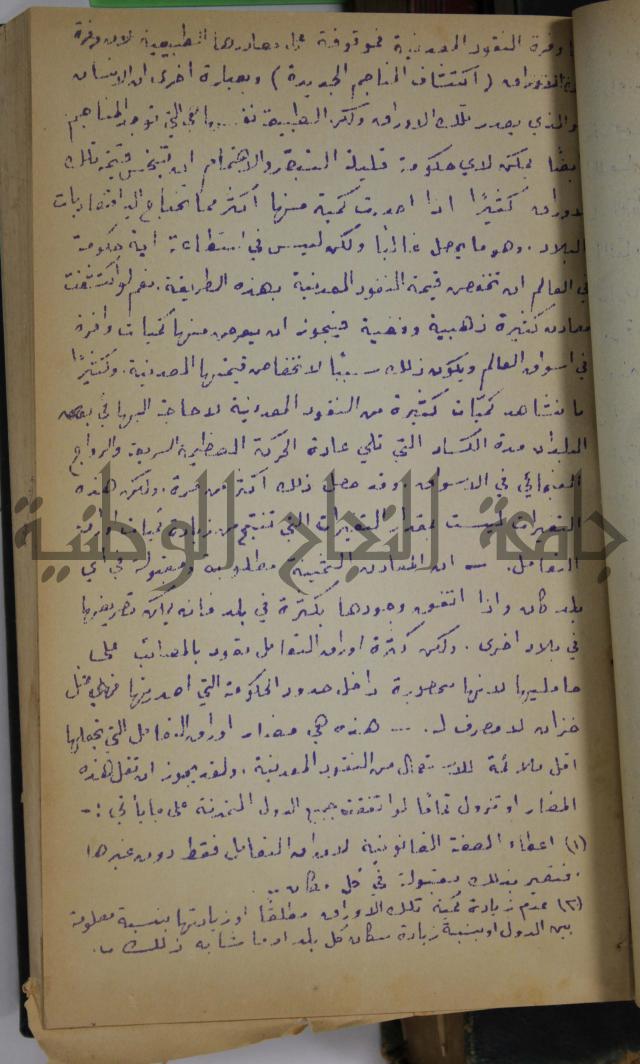 وفرة النقود المعدنية فموقوفة على مصادرها الطبيعية لان وفرة
( اكتشاف المناجم الجديدة ) وبعبارة اخرى ان الانسان
والذي يصدر تلك الاوراق ولكن الطبيعة نفسها هي التي توجد المناجم
يمكن لاي حكومة قليلة التبصر والاهتمام ان تبخس قيمة تلك
كثيرًا اذا اصدرت كمية منها اكثر مما تحتاج اليه اقتصاديات
البلاد . وهو ما يحصل غالبًا ولكن ليس في استطاعة اية حكومة
في العالم ان تخفض قيمة النقود المعدنية بهذه الطريقة . نعم لو اكتشفت
معادن كثيرة ذهبية وفضية فيجوز ان يعرض منها كميات وافرة
في اسواق العالم ويكون ذلك سببًا لانخفاض قيمتها المعدنية . وكثيرًا
ما نشاهد كميات كثيرة من النقود المعدنية لا حاجة اليها في بعض
البلدان مدة الكساد التي تلي عادة الحركة العظيمة السريعة والرواج
في الاسواق . وقد حصل ذلك اكثر من مرة . ولكن هذه
التغيرات ليست بمقدار التغيرات التي تنتج من زيادة كميات اوراق
التعامل . — ان المعادن الثمينة مطلوبة ومقبولة في اي
بلد كان واذا اتفق وجودها بكثرة في بلد فانه يمكن تصريفها
في بلاد اخرى . ولكن كثرة اوراق التعامل تعود بالمصائب على
حامليها لانها محصورة داخل حدود الحكومة التي اصدرتها فهي مثل
خزان لا مصرف له . — هذه هي مضار اوراق التعامل التي تجعلها
اقل ملائمة للاستعمال من النقود المعدنية . ولقد يجوز ان تقل هذه
المضار او تزول تمامًا لو اتفقت جميع الدول المتمدنة على ما يأتي :-
(١) اعطاء الصفة القانونية لاوراق التعامل فقط دون غيرها
فتصير بذلك مقبولة في كل مكان ..
(٢) عدم زيادة كمية تلك الاوراق مطلقًا او زيادتها بنسبة معلومة
بين الدول او بنسبة زيادة سكان كل بلد او ما شابه ذلك
جامعة النجاح الوطنية